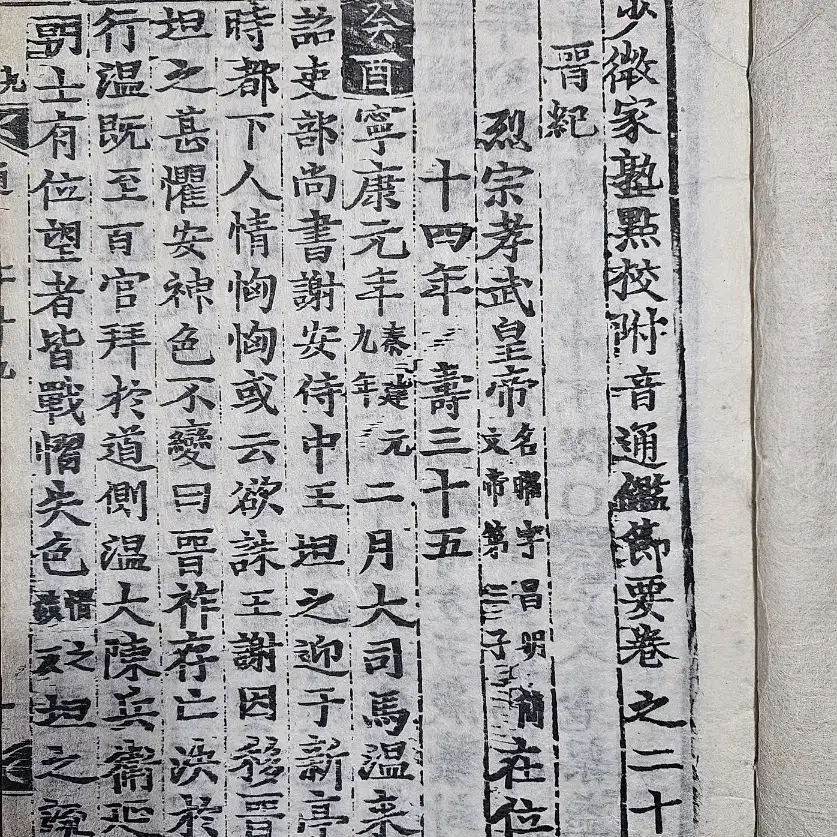 少微家塾點校附音通鑑節要卷之二十
晋紀
烈宗孝武皇帝 名曜字昌明簡文帝第三子 在位
十四年 壽三十五
癸酉 寧康元年 秦建元九年 二月大司馬温來
詔吏部尚書謝安侍中王坦之迎于新亭
時都下人情恟恟或云欲誅王謝因移晋
坦之甚懼安神色不變曰晋祚存亡決於
行温既至百官拜於道側温大陳兵衛延
朝士有位望者皆戰慴失色 慴之 反 坦之